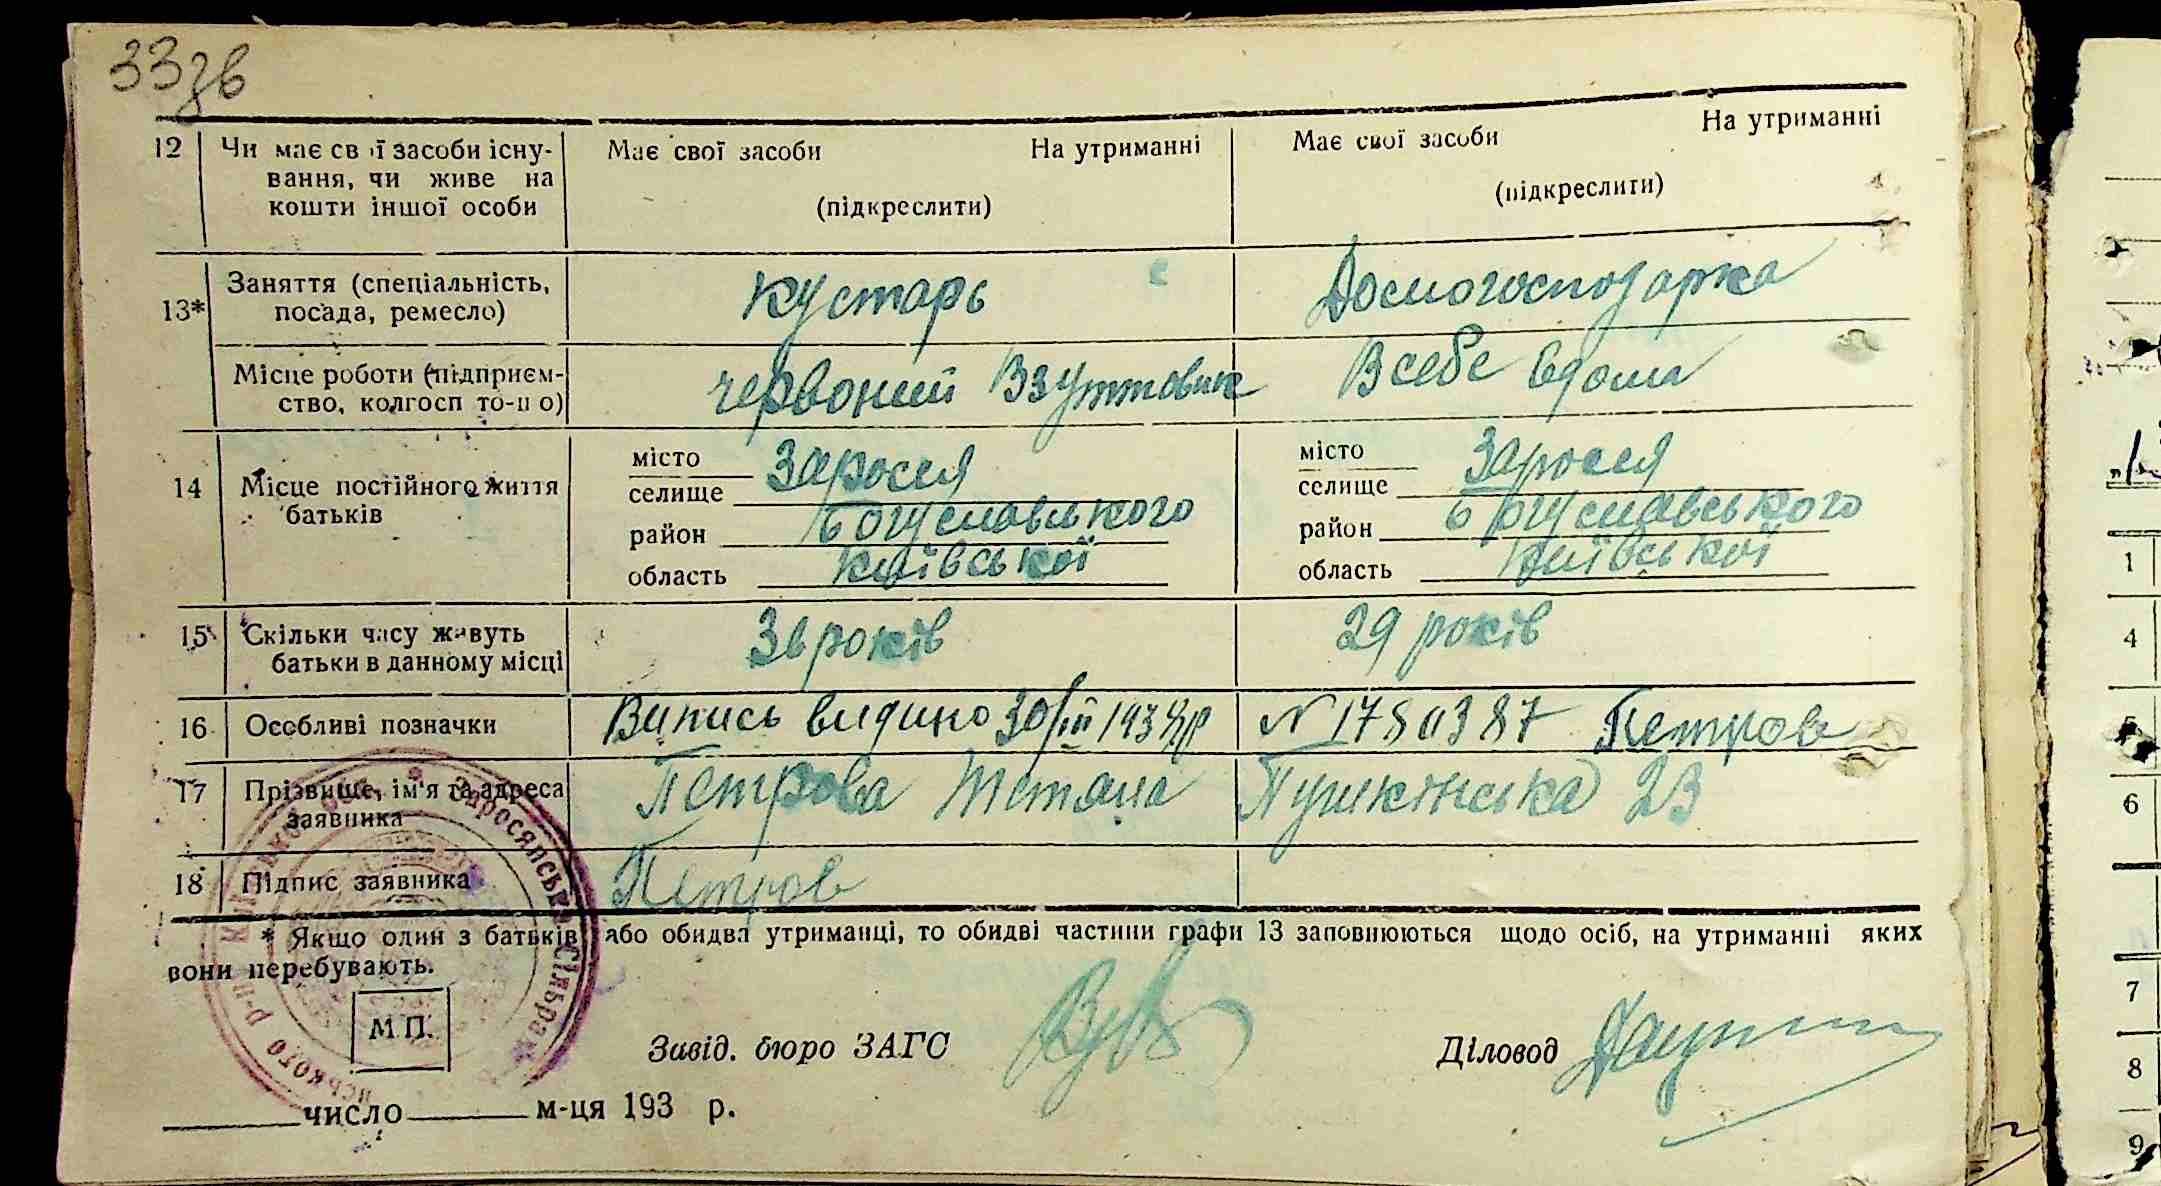 33зв
12 Чи має свої засоби існу- Має свої засоби На утриманні Має свої засоби На утриманні
вання, чи живе на
кошти іншої особи (підкреслити) (підкреслити)
13* Заняття (спеціальність, Кустарь Домогосподарка
посада, ремесло)
Місце роботи (підприєм- Червоний Взуттовик В себе вдома
ство, колгосп то-що)
14 Місце постійного життя місто Заросся місто Заросся
батьків селище селище
район Богуславського район Богуславського
область Київської область Київської
15 Скільки часу живуть 36 років 29 років
батьки в данному місці
16 Особливі позначки Випись видино 30/III 1938р № Петров
17 Прізвище, ім'я та адреса Петрова Тетяна Пушкінська 23
заявника
18 Підпис заявника Петров
* Якщо один з батьків або обидва утриманці, то обидві частини графи 13 заповнюються щодо осіб, на утриманні яких
вони перебувають.
М.П.
Завід. бюро ЗАГС Діловод
число м-ця 193 р.
Заросянська Сільрада
1
4
5
6
7
8
9